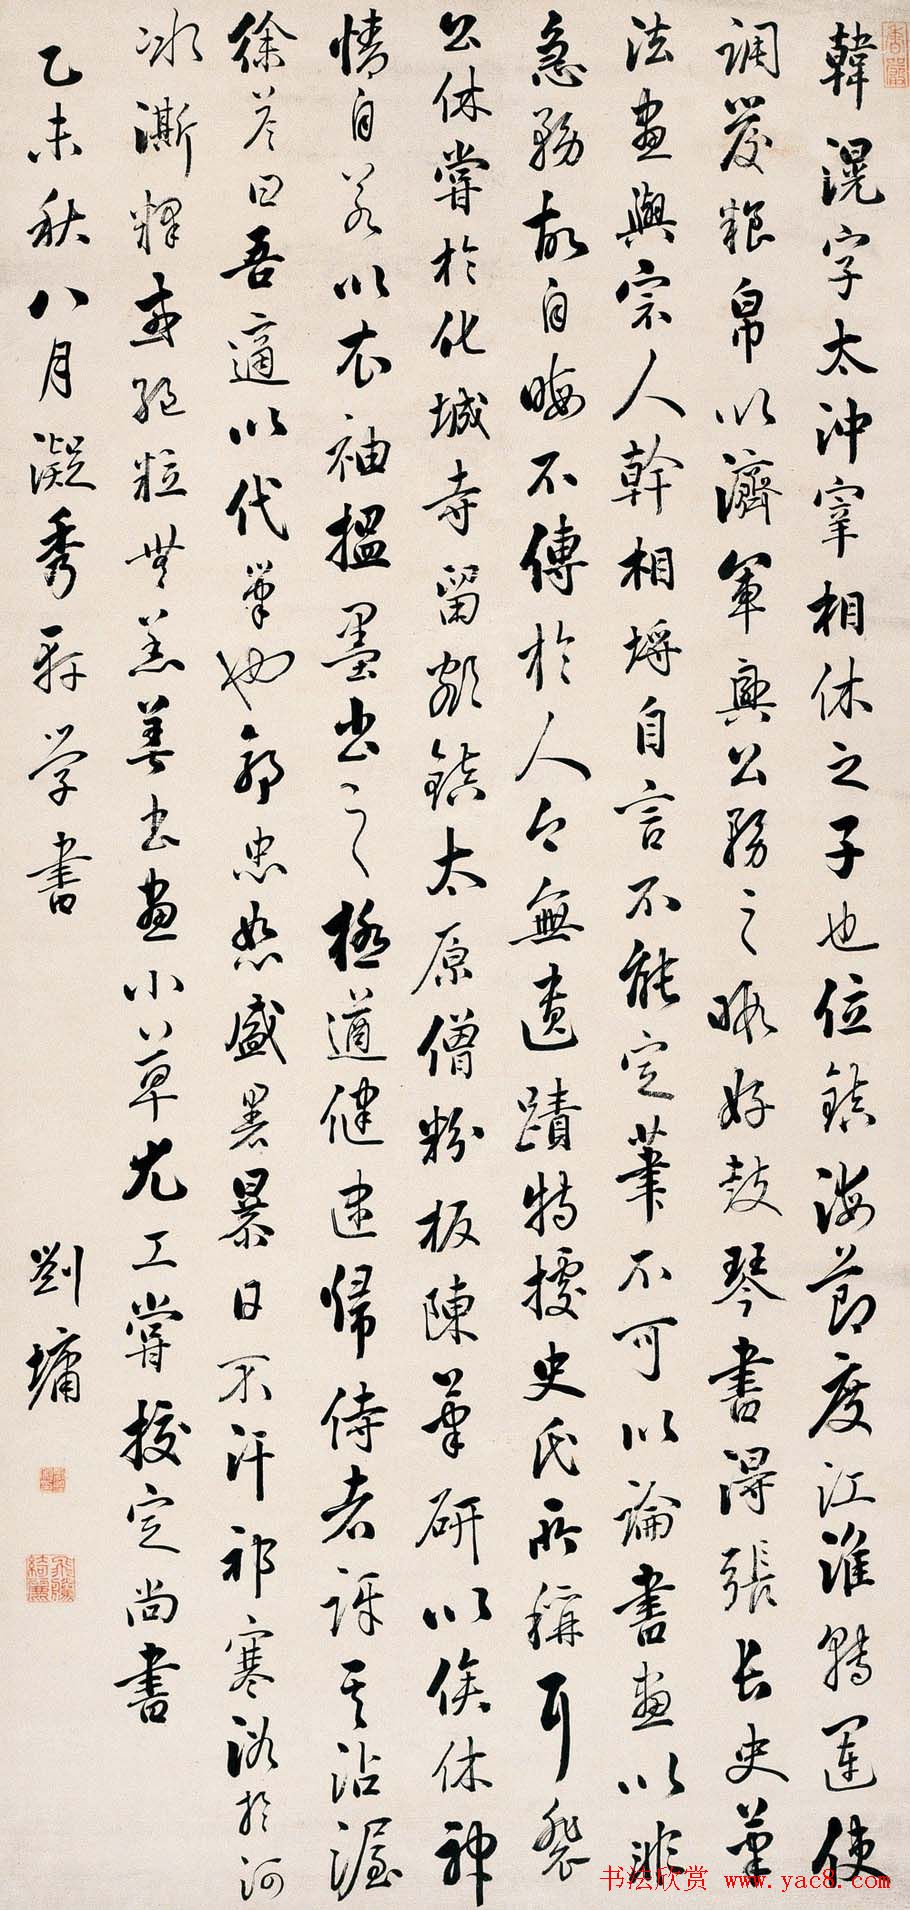 韓滉字太沖宰相休之子也位鎮海節度江淮轉運使
調發粮帛以濟軍興公務之暇好鼓琴書得張長史筆
法畫與宗人幹相埒自言不能定筆不可以論書畫以非
急務故自晦不傳於人今無遺蹟特據史氏所稱耳裴
公休嘗於化城寺留額鎮太原僧粉板陳筆研以俟休神
情自若以衣袖揾墨書之極遒健逮歸侍者訝其沾渥
徐答曰吾適以代筆也郭忠恕盛暑暴日不汗祁寒浴於河
冰澌釋或絕粒無恙善書畫小草尤工嘗校定尚書
乙未秋八月凝秀軒学書
劉墉
书法欣赏 www.yac8.com